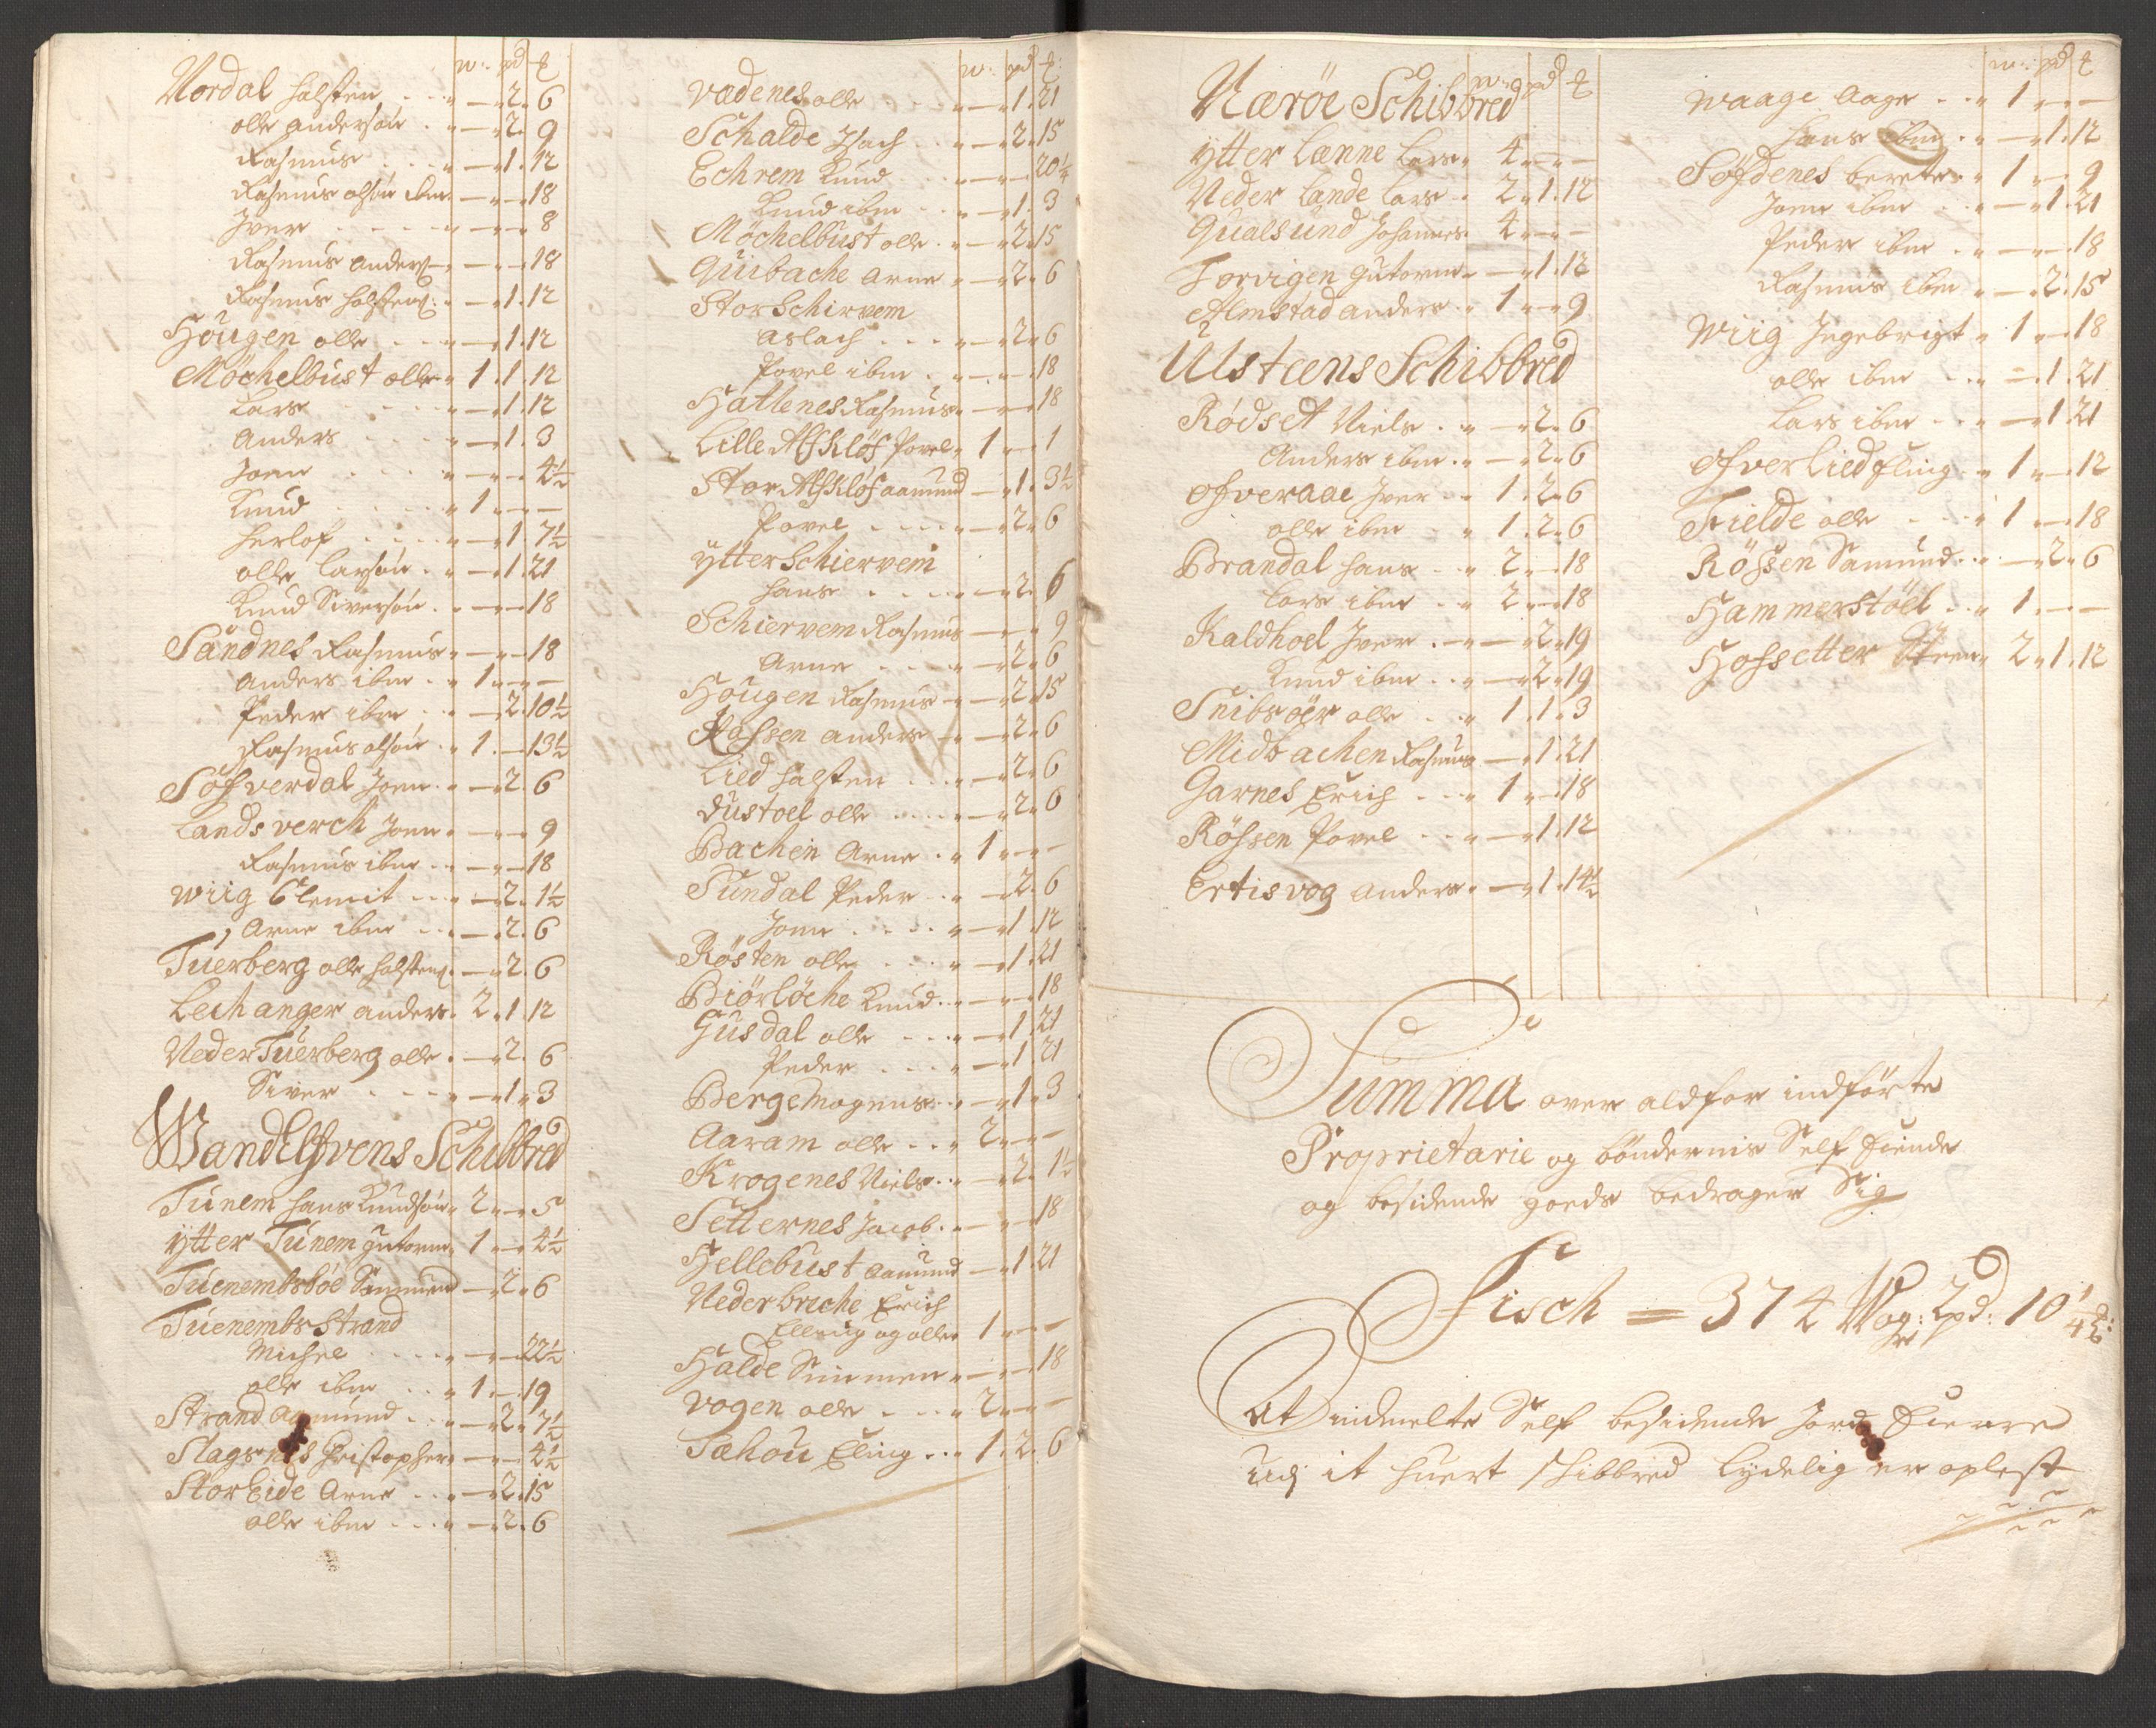 w: pd ℔
Nordal Halsten . . " — 2. 6
olle andersøn . " — 2. 9
Rasmus . . . " — 1. 12
Rasmus olsøn ibm " — " — 18
Iver . . . . " — " — 8
Rasmus anders: " — " — 18
Rasmus halstens: " — 1. 12
Hougen olle . . " — 1. 12
Møchelbust olle " 1. 1. 12
Lars . . . . " — 1. 12
Anders . . . " — 1. 3
Joen . . . . " — " — 4½
Knud . . . . " 1 " — " —
Herlof . . . . " — 1. 7½
olle larsøn . " — 1. 21
Knud Siversøn . " — " — 18
Sandnes Rasmus " — " — 18
Anders ibm . " 1 " — " —
Peder ibm . . " — 2. 10½
Rasmus olsøn . " 1. — 13½
Søfverdal Joen . " — 2. 6
Landsverch Joen " — " — 9
Rasmus ibm . " — " — 18
Wiig Clemit . . " — 2. 1½
Arne ibm . . " — 2. 6
Tuerberg olle halstens: " — 2. 6
Lechanger anders " 2. 1. 12
Neder Tuerberg olle . " — 2. 6
Siver . . . . " — 1. 3
Wandelfvens Schibbred
Tunem hans Knudsøn " 2 " — 5
Ytter Tunem gutorm " 1 " — 4½
Tuenembsböe Simmund — 2. 6
Tuenembs Strand
Michel . . . . " — " 22½
olle ibm . . " 1. — 19
Strand Aamund . . " — 2. 7½
Slagsnes Christopher " — " — 4½
Stor Eide Arne . . " — 2. 15
olle ibm . . . " — 2. 6
w: pd ℔:
Vadenes olle . . . " — 1. 21
Schalde Isach . . " — 2. 15
Echrem Knud . . . " — " 20¼
Knud ibm . . " — 1. 3
Møchelbust olle . " — 2. 15
Guibache Arne " — 2. 6
Stor Schirvem
Aslach . . . " — 2. 6
Povel ibm . " — " — 18
Hatlenes Rasmus " — " — 18
Lille Alfkløf Povel " 1 " — 1
Stor Alfkløf aamund — 1. 3½
Povel . . . . " — 2. 6
Ytter Schiervem
Hans . . . . " — 2. 6
Schiervem Rasmus — " — 9
Arne . . . . " — 2. 6
Hougen Rasmus " — 2. 15
Rossen anders " — 2. 6
Lied halsten . . " — 2. 6
Dustoel olle . . . " — 2. 6
Bachen Arne . " 1 " — " —
Sundal Peder . . " — 2. 6
Joen . . . . " — 1. 12
Røsten olle . . . " — 1. 21
Biørløche Knud . " — " — 18
Gusdal olle . . . " — 1. 21
Peder . . . . " — 1. 21
Berge Mogens . " — 1. 3
Aaram olle . . . " 2 " — " —
Krogenes Niels . " — 2. 1½
Setternes Jacob . " — " — 18
Hellebust aamund — 1. 21
Neder breche Erich
Elling og olle " 1 " — " —
Halde Simmen . " — " — 18
Vogen olle . . . " 2 " — " —
Sæhou Elling . . " 1. 2. 6
w: pd ℔
Nærøe Schibbred
Ytter Lænne Lars " 4 " — " —
Neder Lande Lars " 2 " 1. 12
Gualsund Johannes 4 " — " —
Torvigen gutorm " — 1. 12
Almestad anders . " 1 " — 9
Ulsteens Schibbred
Rødset Niels . " — 2. 6
Anders ibm . " — 2. 6
Ofveraae Iver . " 1. 2. 6
olle ibm . " 1. 2. 6
Brandal hans . " 2 " — 18
Lars ibm . " 2 " — 18
Kaldhoel Iver . " — 2. 19
Knud ibm . " — 2. 19
Snibsøer olle . " 1. 1. 3
Midbachen Rasmus " — 1. 21
Garnes Erich . . " 1 " — 18
Røhsen Povel . . " — 1. 12
Ertisvog Anders " — 1. 14½
w: pd ℔
Waage Aage . . " 1 " — " —
hans ibm . " — 1. 12
Søfdenes berete " 1 " — 9
Joen ibm . . " — 1. 21
Peder ibm . . " — " — 18
Rasmus ibm . " — 2. 15
Wiig Ingebrigt " 1 " — 18
olle ibm . . " — 1. 21
Lars ibm . . " — 1. 21
Ofver Lied Elling . " 1 " — 12
Fielde olle . . . " 1 " — 18
Røhsen Samund . " — 2. 6
Hammerstøel . . " 1 " — " —
Hohsetter Steen " 2 " 1. 12
Summa over aldfor indførte
Proprietarie og bøndernis Self Eiende
og besidende goeds bedrager Sig
Fisch = 374 Wog: 2 pd: 10¼ ℔:
At indmelte Self besidende Jord Eiere
udj it huert Schibbred lydelig er oplest